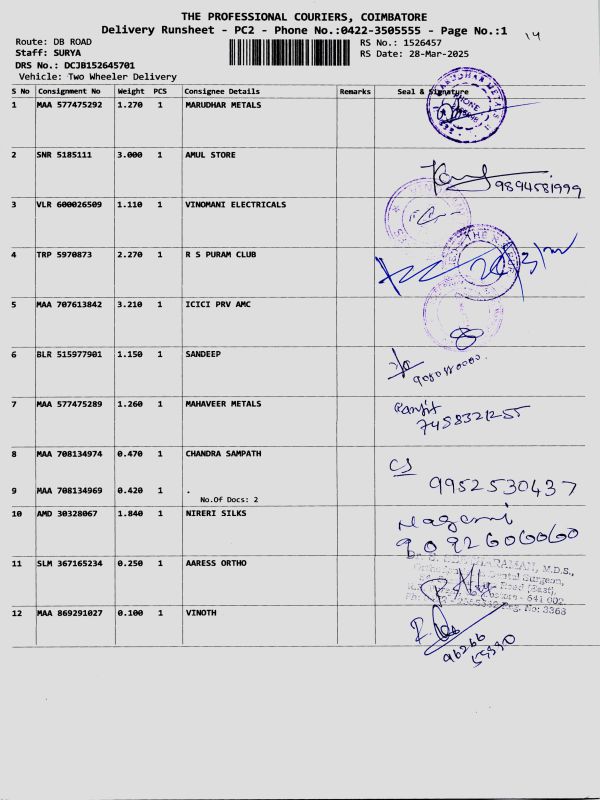 THE PROFESSIONAL COURIERS, COIMBATORE
Delivery Runsheet - PC2 - Phone No.:0422-3505555 - Page No.:1
14
Route: DB ROAD
RS No.: 1526457
Staff: SURYA
RS Date: 28-Mar-2025
DRS No.: DCJB152645701
Vehicle: Two Wheeler Delivery
S No Consignment No Weight PCS Consignee Details Remarks Seal & Signature
1 MAA 577475292 1.270 1 MARUDHAR METALS
2 SNR 5185111 3.000 1 AMUL STORE
9894581999
3 VLR 600026509 1.110 1 VINOMANI ELECTRICALS
4 TRP 5970873 2.270 1 R S PURAM CLUB
5 MAA 707613842 3.210 1 ICICI PRV AMC
6 BLR 515977901 1.150 1 SANDEEP
7 MAA 577475289 1.260 1 MAHAVEER METALS
Ranjit
7458321255
8 MAA 708134974 0.470 1 CHANDRA SAMPATH
CS
9952530437
9 MAA 708134969 0.420 1 .
No.Of Docs: 2
10 AMD 30328067 1.840 1 NIRERI SILKS
9092600060
11 SLM 367165234 0.250 1 AARESS ORTHO
M.D.S.,
Dental Surgeon,
Road (East),
641 002.
Reg. No: 3368
12 MAA 869291027 0.100 1 VINOTH
96266